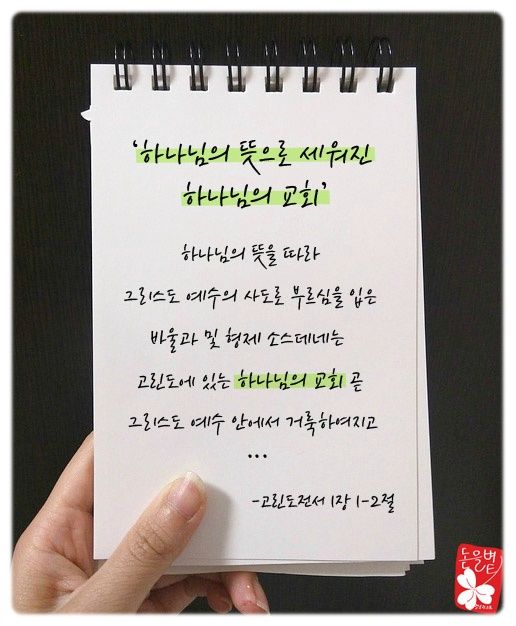 ‘하나님의 뜻으로 세워진
하나님의 교회’
하나님의 뜻을 따라
그리스도 예수의 사도로 부르심을 입은
바울과 및 형제 소스데네는
고린도에 있는 하나님의 교회 곧
그리스도 예수 안에서 거룩하여지고
...
-고린도전서 1장 1-2절
돋을볕